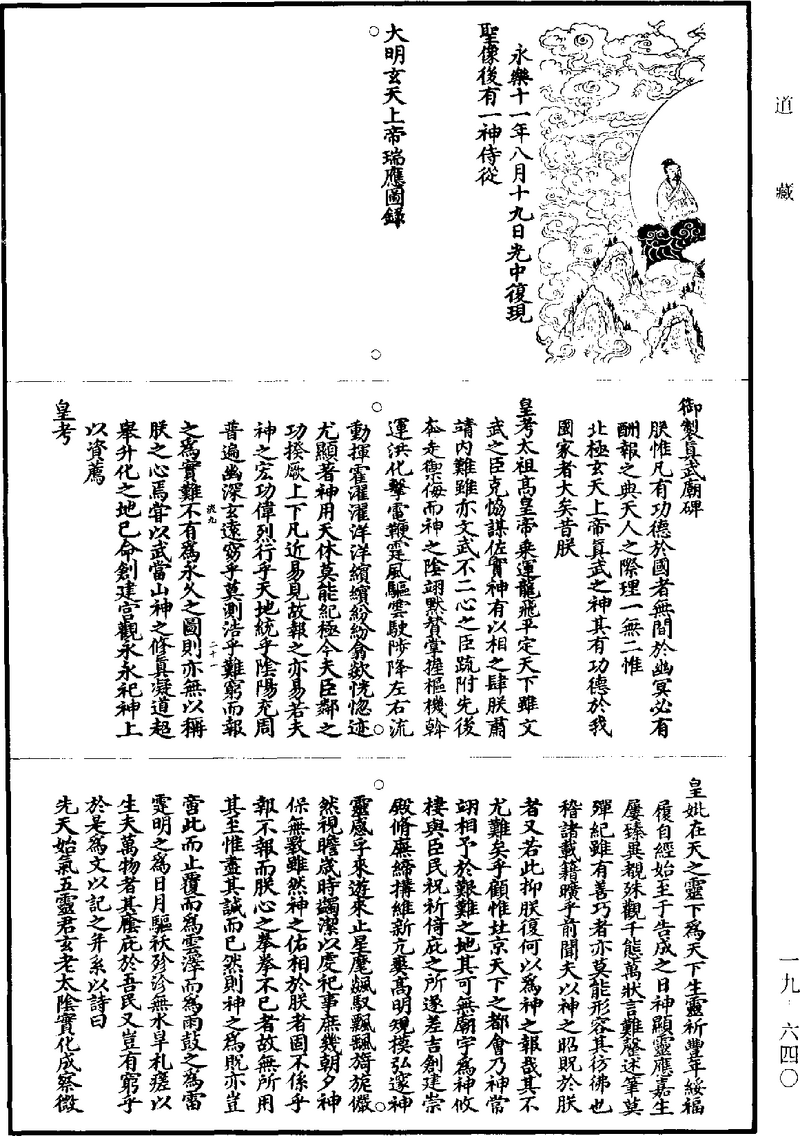 道藏
永樂十一年八月十九日光中復現
聖像後有一神侍從
大明玄天上帝瑞應圖錄
御製真武廟碑
朕惟凡有功德於國者無間於幽冥必有
酬報之典天人之際理一無二惟
北極玄天上帝真武之神其有功德於我
國家者大矣昔朕
皇考太祖高皇帝乘運龍飛平定天下雖文
武之臣克協謀佐實神有以相之肆朕肅
靖內難雖亦文武不二心之臣疏附先後
奔走禦侮而神之陰翊默贊掌握樞機斡
運洪化擊電鞭霆風驅雲駛陟降左右流
動揮霍濯濯洋洋繽繽紛紛翕欻恍惚迹
尤顯著神用天休莫能紀極今夫臣鄰之
功揆厥上下凡近易見故報之亦易若夫
神之宏功偉烈行乎天地統乎陰陽充周
普遍幽深玄遠窈乎莫測浩乎難窮而報
流九
二十一
之為實難不有為永久之圖則亦無以稱
朕之心焉嘗以武當山神之修真凝道超
舉升化之地已命創建宮觀永永祀神上
以資薦
皇考
皇妣在天之靈下為天下生靈祈豐年綏福
履自經始至于告成之日神顯靈應嘉生
屢臻異覩殊觀千態萬狀言難罄述筆莫
殫紀雖有善巧者亦莫能形容其彷彿也
稽諸載籍曠乎前聞夫以神之昭貺於朕
者又若此抑朕復何以為神之報哉其不
尤難矣乎顧惟北京天下之都會乃神常
翊相予於艱難之地其可無廟宇為神攸
棲與臣民祝祈倚庇之所遂差吉創建崇
殿脩廡締搆維新亢爽高明規模弘邃神
靈感孚來遊來止星麾飊馭飄飄旖旋儼
然視瞻歲時蠲潔以虔祀事庶幾朝夕神
保無斁雖然神之佑相於朕者固不係乎
報不報而朕心之拳拳不已者故無所用
其至惟盡其誠而已然則神之為貺亦豈
啻此而止覆而為雲澤而為雨鼓之為雷
霆明之為日月驅袄殄沴無水旱札瘥以
生夫萬物者其廕庇於吾民又豈有窮乎
於是為文以記之并系以詩曰
先天始氣五靈君玄老太陰實化成察微
一九·六四〇